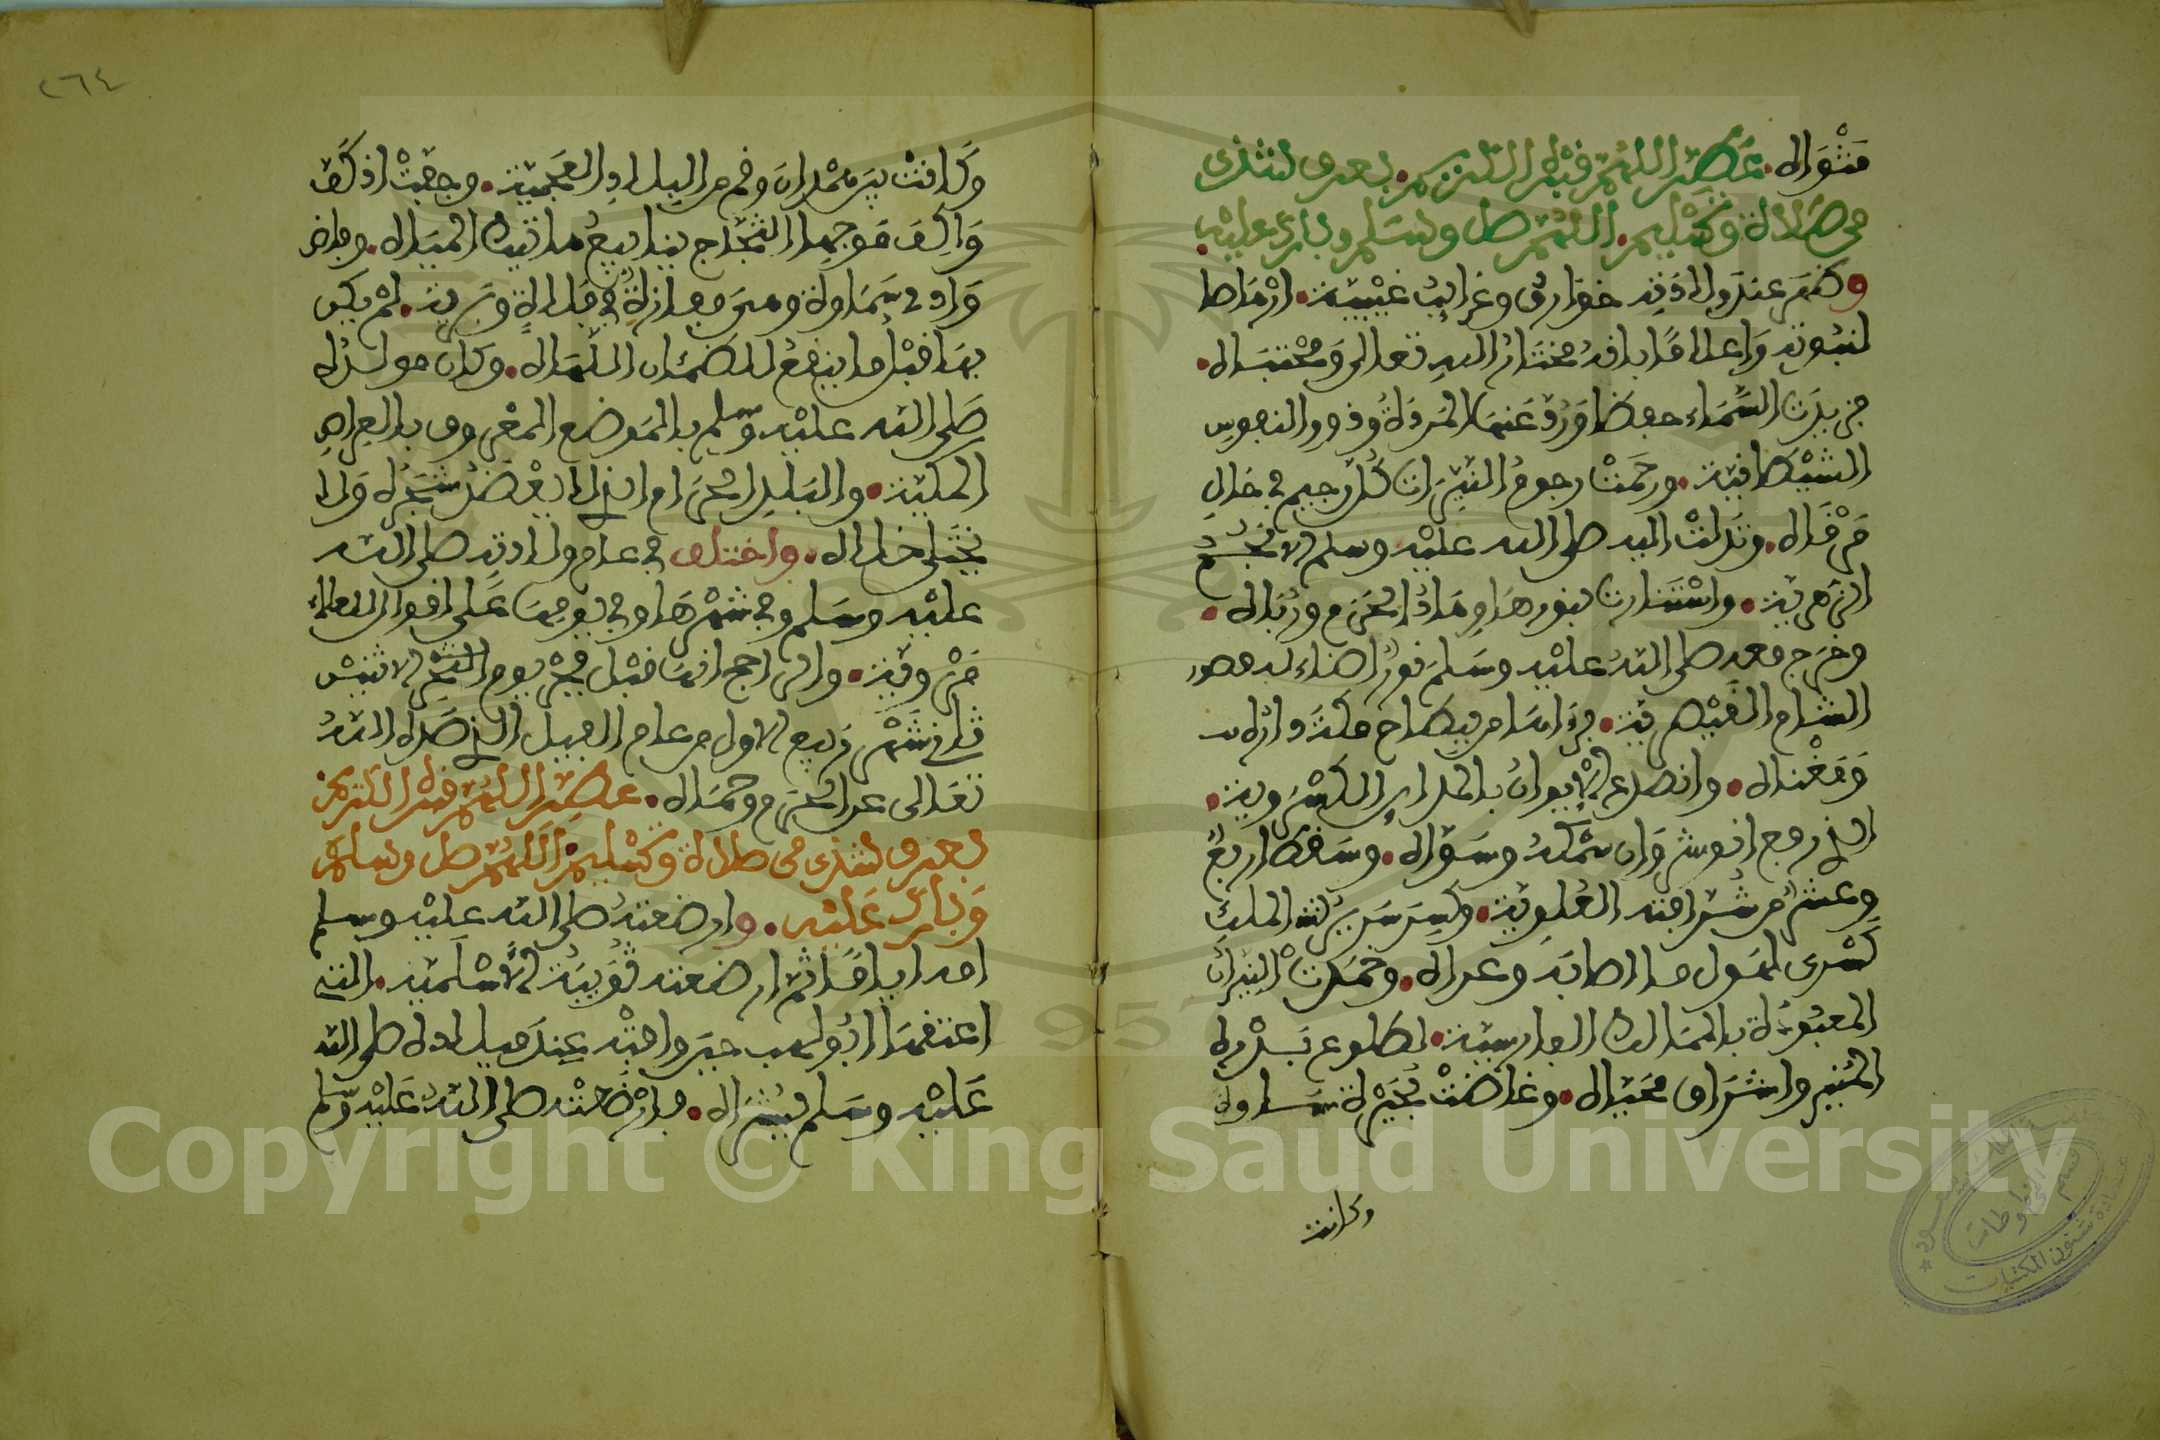 مَثْوَاه. عَطِّرِ اللهُمَّ قَبْرَهُ الكَرِيم. بِعَرْفٍ شَذِيٍّ
مِن صَلاةٍ وَتَسْلِيم. اللهُمَّ صل وسَلم وبارك عليْه.
وظهَر عندَ وِلادَتِه خوَارقُ وغرائبُ غيْبِيَّة. ارْهاصا
لنبُوتِه وَاعلامًا بانه مختارُ اللهِ تعالى وَمجْتبَاه.
فزيدَت السَّمَاء حفظا وَرُدَّ عَنهَا المرَدَةُ وذوو النفوس
الشيْطانية. ورجَمَتْ رجومُ النيِّرات كُل رجيم في حَالِ
مَرْقَاه. وتدَلتْ اليه صلى الله عليْه وسلم الانجُمُ
الزهرية. واسْتنارت بنورهَا وِهَادُ الحَرَم ورُبَاه.
وخرَج معه صلى اللهُ عليْه وسَلمَ نورٌ اضاء له قصور
الشام القَيْصرية. فرءاها من ببطاح مكةَ داره
وَمَغْناه. وانصدع الإيوانُ بالمدائن الكسْروية.
الذي رفع انوشروَان سَمْكَهُ وسَوَّاه. وسَقط اربعٌ
وعشرٌ من شُرُافته العُلوِيَّة. وكُسِرَ سَرِيرُ المَلِكِ
كِسْرى لهَول ما اصابَه وعَراه. وخمَدَتْ النيرانُ
المعبُودة بالممَالك الفارسِيَّة. لطلوع بَدْرِه
المُنير واشرَاق مُحَيَّاه. وغاضَتْ بُحَيْرة سَاوة
وكانت
٢٦٤
وَكانتْ بيَن هَمَدانَ وقم من البِلادِ العَجَمِيَّة. وجفتْ اذ كَفَّ
وَاكِفُ مَوجها الثجّاج ينابيعُ هاتيك الميَاه. وفاض
وَادى سَمَاوة وهيَ مفازةٌ في فَلاةٍ وَبَرِّية. لمْ يكن
بهَا قبْلُ ما ينقعُ للظمْئان اللهَاه. وكان مولدُه
صَلى الله عليْه وسَلم بالمَوضع المعْروف بالعِراص
المكية. والبَلدِ الحَرام الذي لا يعْضدُ شجَرُه وَلا
يُختلى خلاه. واختلف في عام ولادته صلى الله
عليْه وسَلم وفي شهْرِهَا وفي يومِهَا عَلى اقوال للعلماء
مَرْوية. والراجح انها قبْل فجْرِ يومِ الاثنيْن
ثاني شَهْر رَبيع الاول من عام الفيل الذي صَدَّه اللهُ
تعَالى عن الحَرم وحَمَاه. عطِّر اللهُمَّ قبْرَه الكَريم
بعَرْفٍ شذيٍّ من صلاة وتسْليم. اللهُمَّ صل وسلم
وَبَارِك عَليْه. وارضعتهُ صلى الله عليْه وسلم
امه اياما ثم ارضعته ثوَيبَةُ الأسْلمية. التي
اعتقهَا ابُو لهب حينَ وافتْه عِندَ ميلاده صلى الله
عَليْه وسَلم ببُشراه. فارْضعتْه صلى اللهُ عَليْه وسلم
Copyright © King Saud University
1957